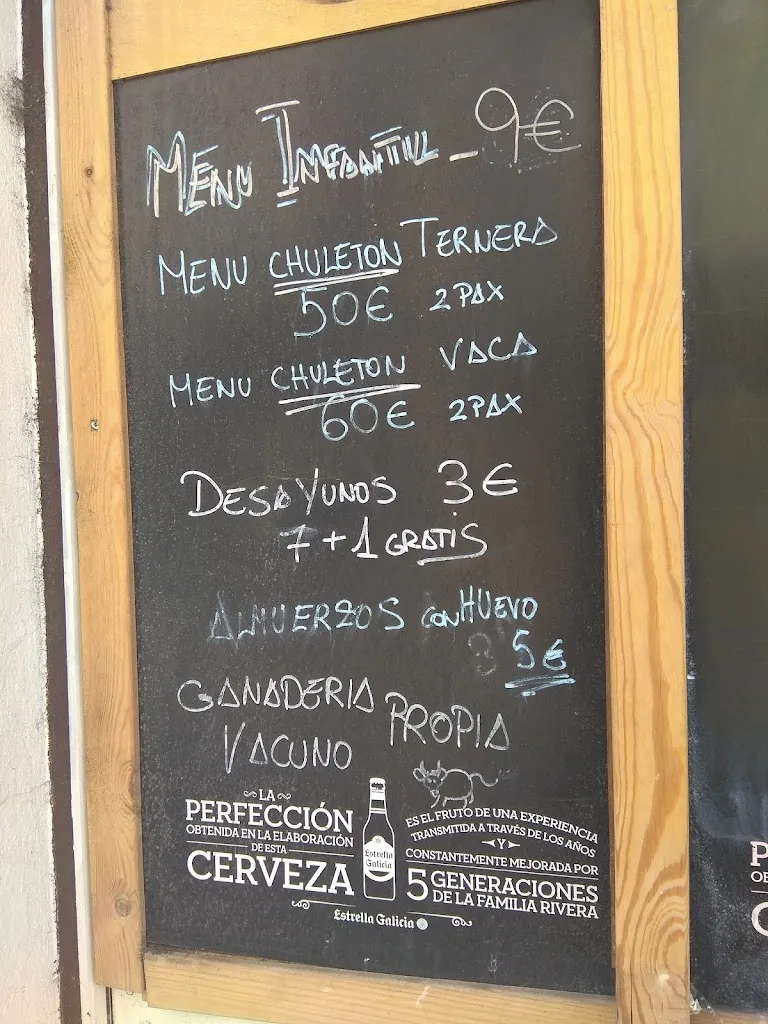 MENU INFANTIL - 9€
MENU CHULETON TERNERA
50€ 2 PAX
MENU CHULETON VACA
60€ 2 PAX
DESAYUNOS 3€
7+1 GRATIS
ALMUERZOS CON HUEVO
5€
GANADERIA PROPIA
VACUNO
LA
PERFECCIÓN
OBTENIDA EN LA ELABORACIÓN
DE ESTA
CERVEZA
Estrella
Galicia
ES EL FRUTO DE UNA EXPERIENCIA
TRANSMITIDA A TRAVÉS DE LOS AÑOS
Y
CONSTANTEMENTE MEJORADA POR
5 GENERACIONES
DE LA FAMILIA RIVERA
Estrella Galicia